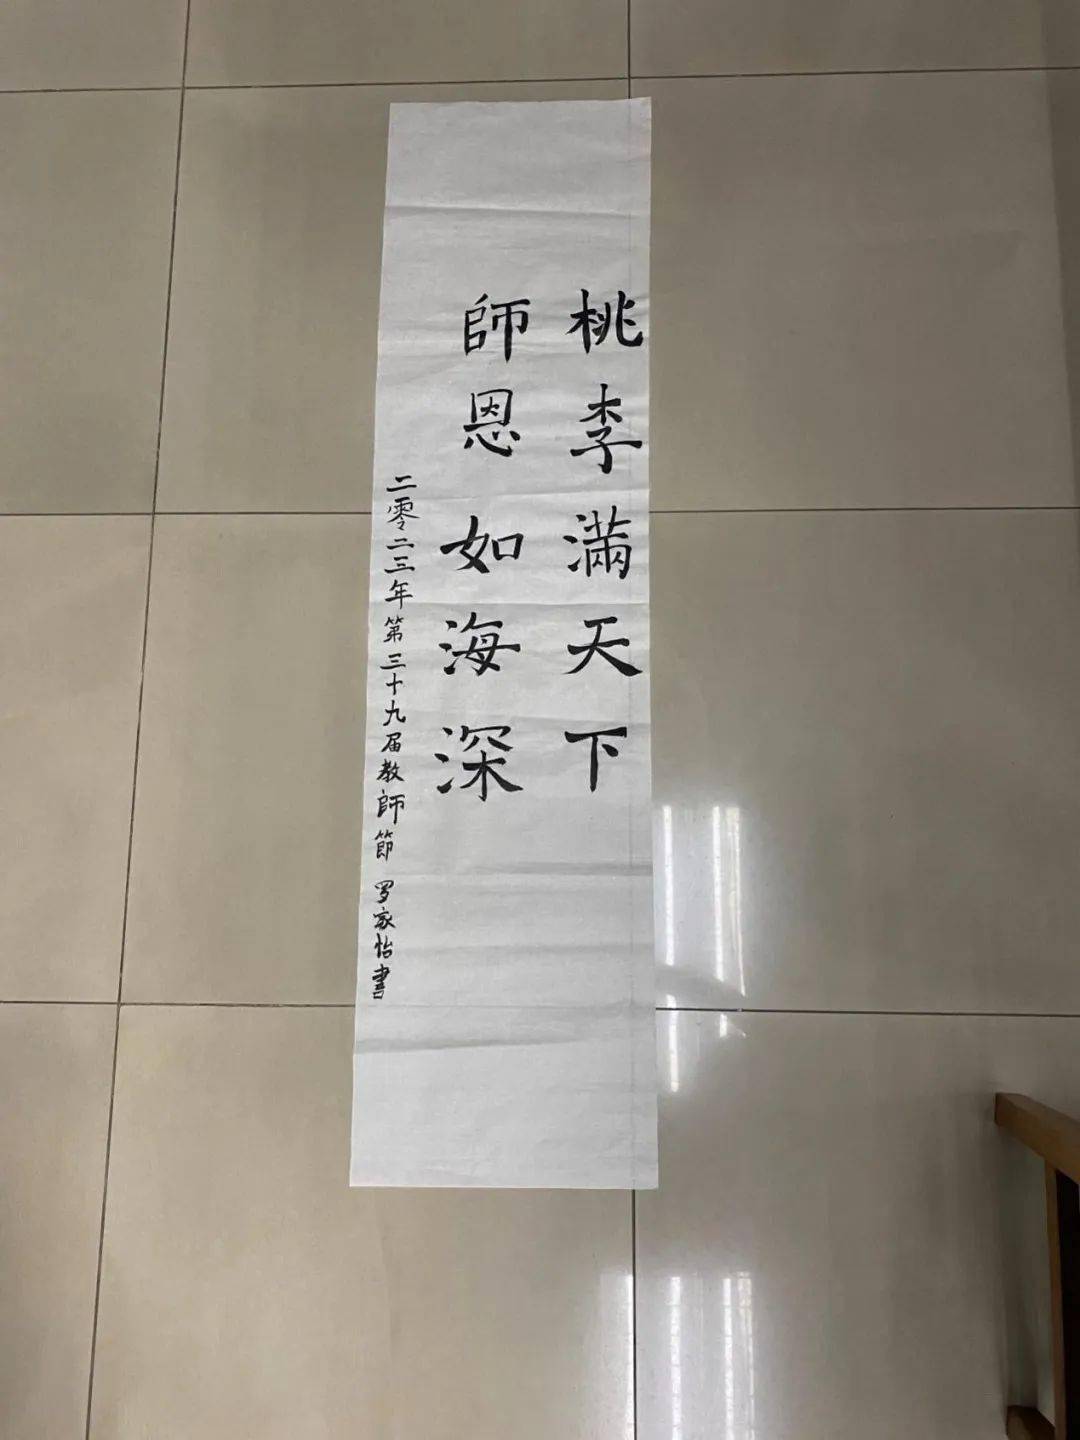 桃李滿天下
師恩如海深
二零二三年第三十九届教師節 罗家怡書